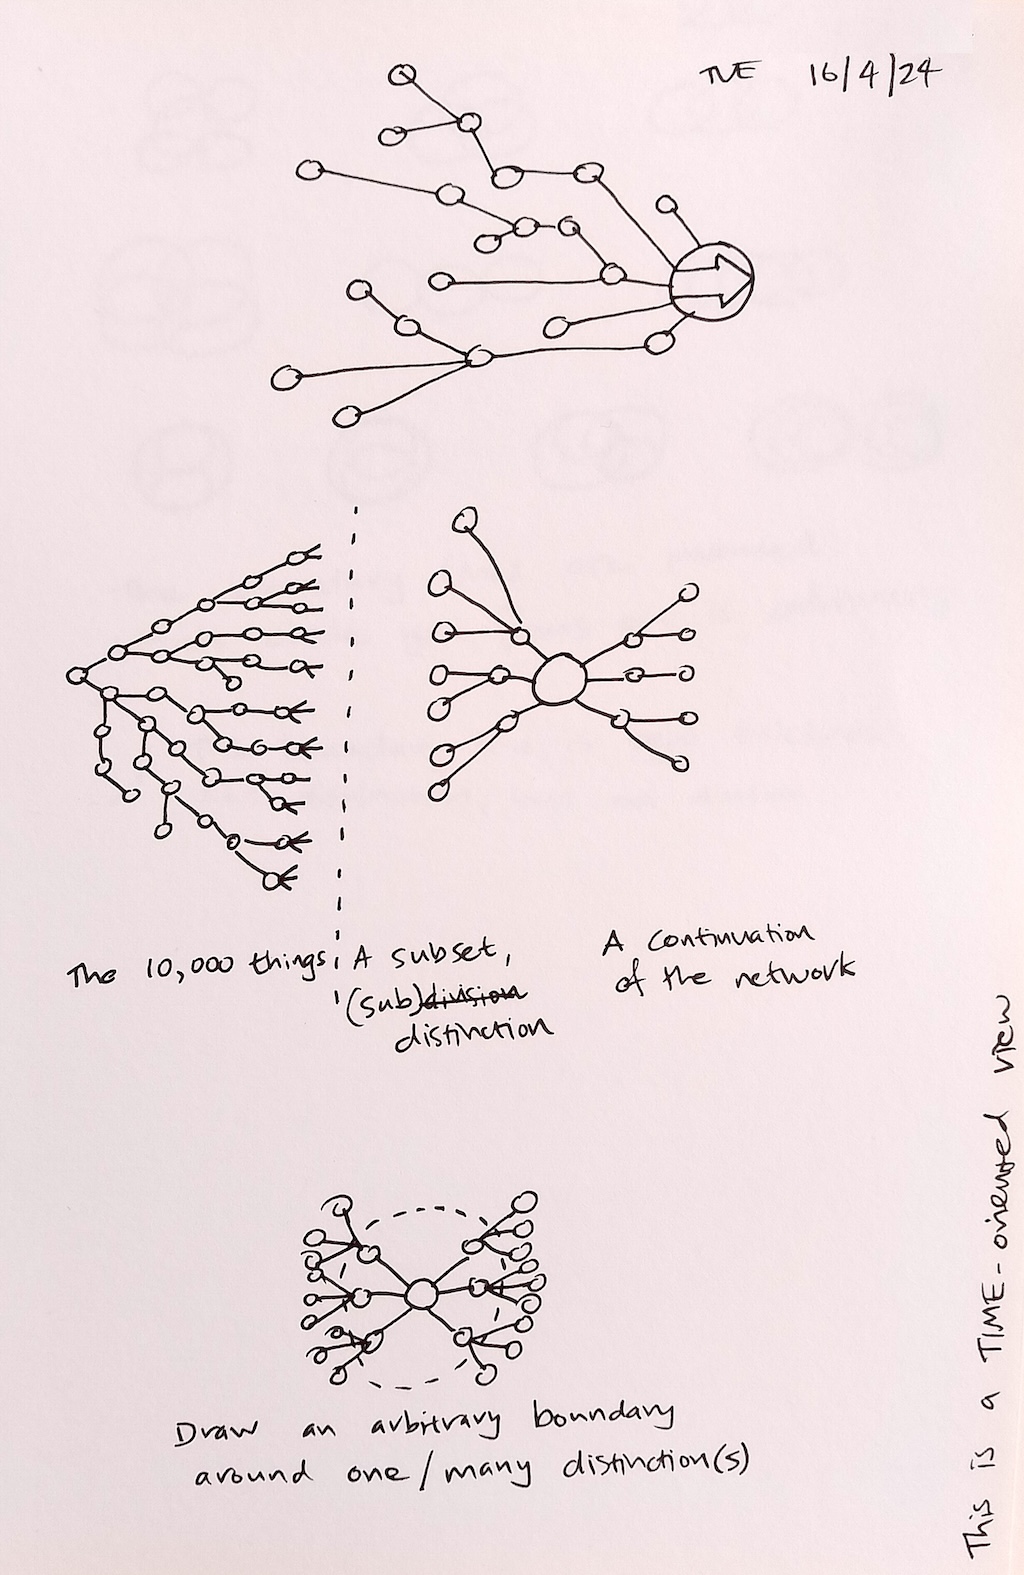 TUE 16/4/24
The 10,000 things
A subset,
(sub)division
distinction
A continuation
of the network
Draw an arbitrary boundary
around one/many distinction(s)
This is a TIME-oriented view